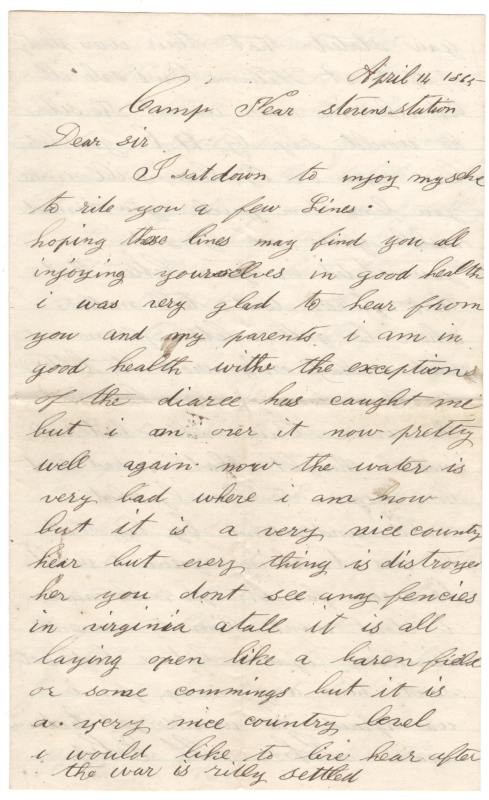 April 14 1865
Camp Near stevens station
Dear sir
I sat down to injoy myselve
to rite you a few Lines.
hoping these lines may find you all
injoying yourselves in good health
i was very glad to hear from
you and my parents i am in
good health withe the exceptions
of the diaree has caught me
but i am over it now pretty
well again. now the water is
very bad where i am now
but it is a very nice country
hear but every thing is distroyed
her you dont see anny fencies
in virginia atall it is all
laying open like a baren field
or some commings but it is
a. very nice country level
i would like to live hear after
the war is rilly settled